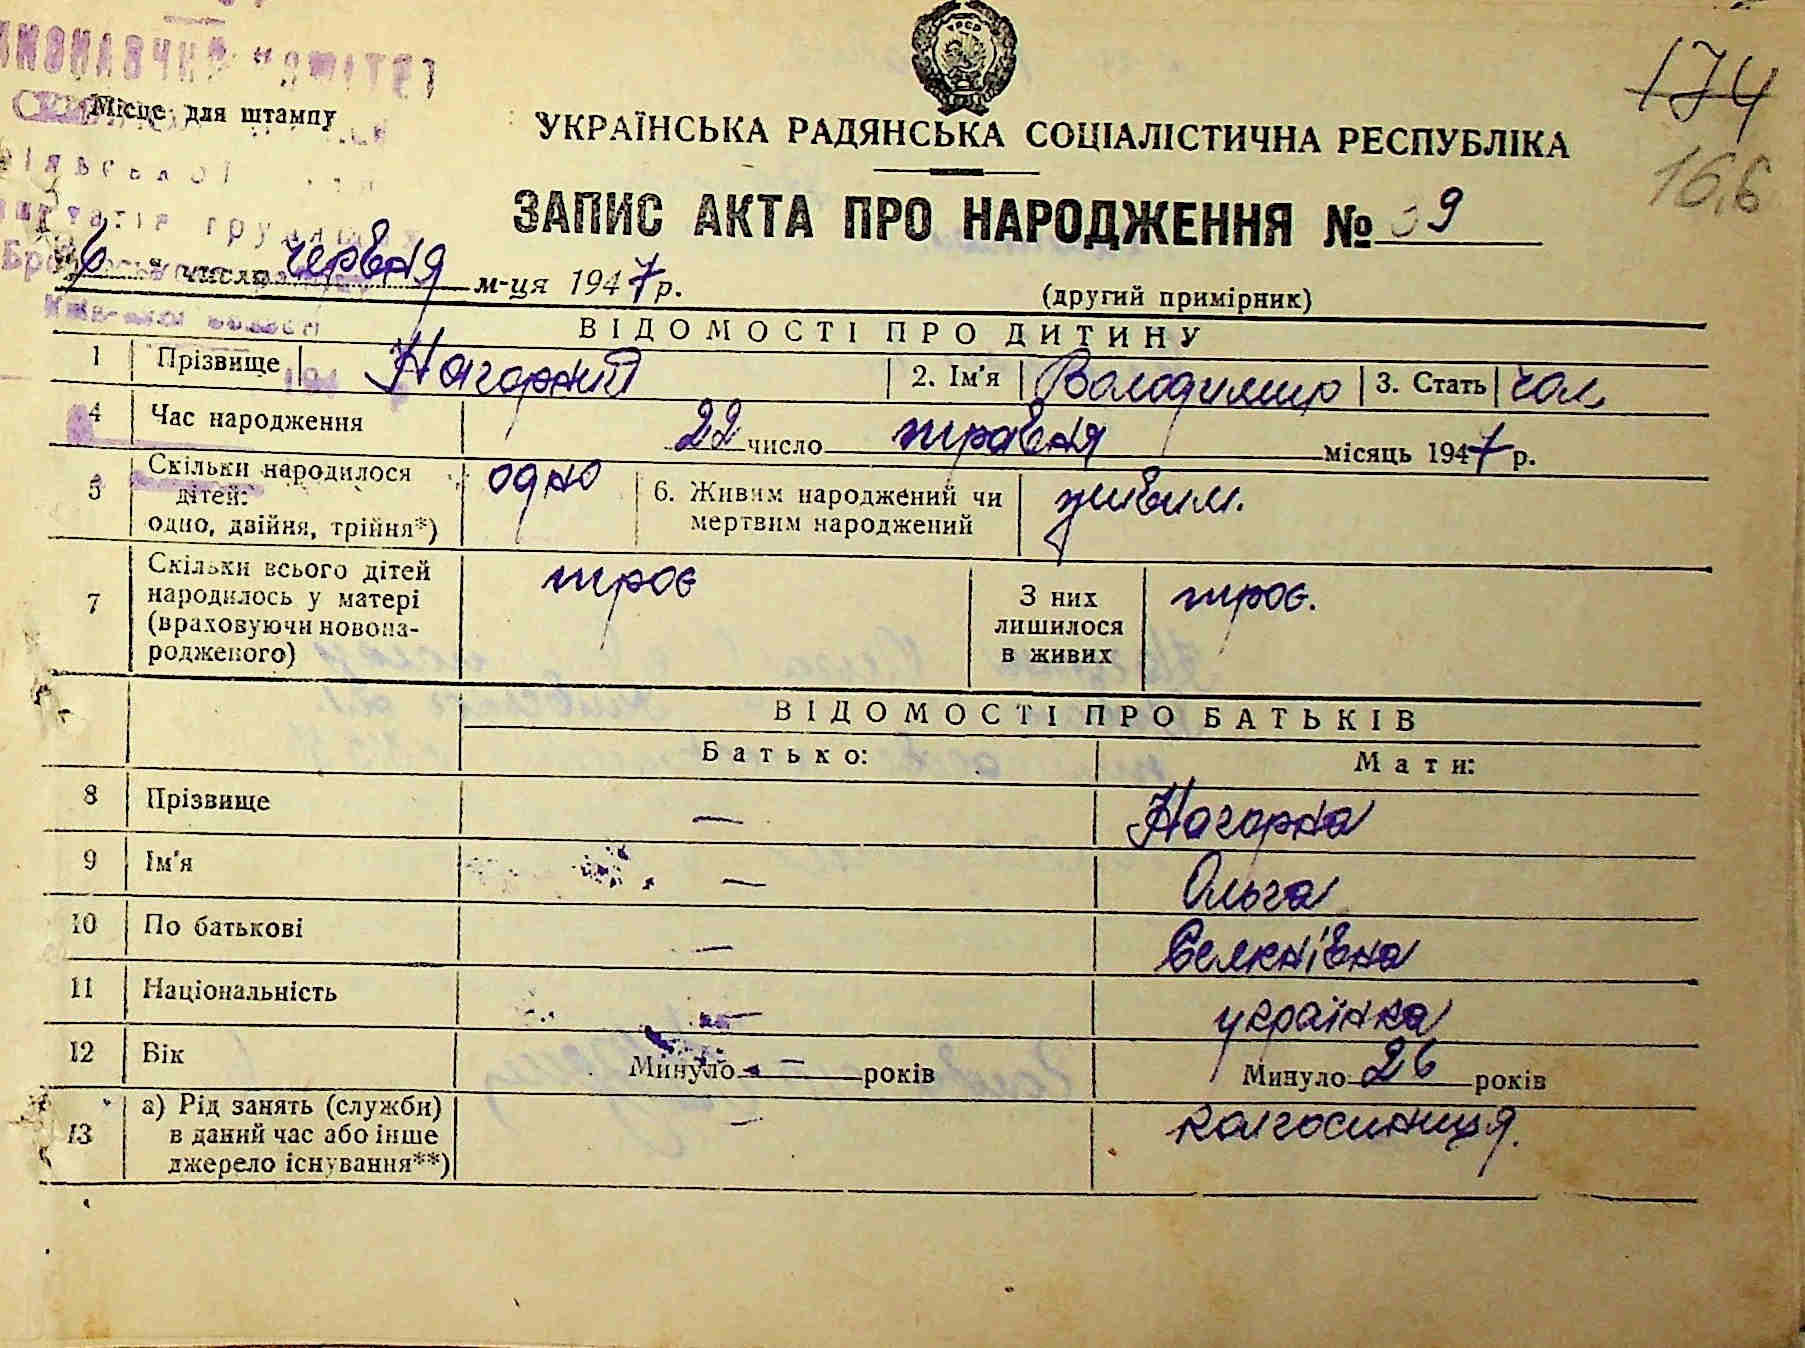 174
166
Місце для штампу
УКРАЇНСЬКА РАДЯНСЬКА СОЦІАЛІСТИЧНА РЕСПУБЛІКА
ЗАПИС АКТА ПРО НАРОДЖЕННЯ № 39
6 число червня м-ця 1947 р.
(другий примірник)
ВІДОМОСТІ ПРО ДИТИНУ
1 Прізвище Нагорний 2. Ім'я Володимир 3. Стать чол
4 Час народження 22 число травня місяць 1947 р.
5 Скільки народилося дітей: одно, двійня, трійня*) одно 6. Живим народжений чи мертвим народжений живим.
7 Скільки всього дітей народилось у матері (враховуючи новонародженого) троє З них лишилося в живих троє.
ВІДОМОСТІ ПРО БАТЬКІВ
Батько: Мати:
8 Прізвище — Нагорна
9 Ім'я — Ольга
10 По батькові —
11 Національність — українка
12 Вік Минуло — років Минуло 26 років
13 а) Рід занять (служби) в даний час або інше джерело існування**) — колгоспниця.